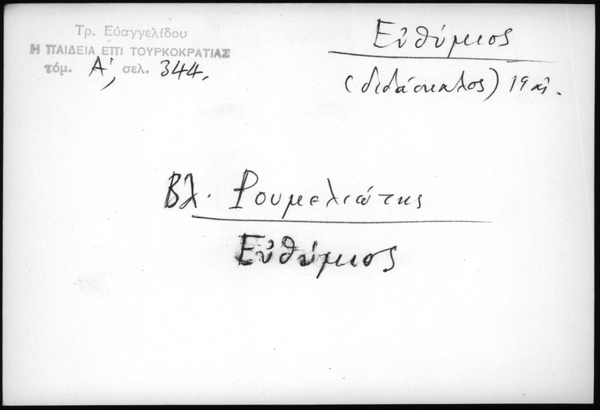 Τρ. Εὐαγγελίδου
Η ΠΑΙΔΕΙΑ ΕΠΙ ΤΟΥΡΚΟΚΡΑΤΙΑΣ
τόμ. Α', σελ. 344.
Εὐθύμιος
(διδάσκαλος) 19 αἰ.
Βλ. Ρουμελιώτης
Εὐθύμιος